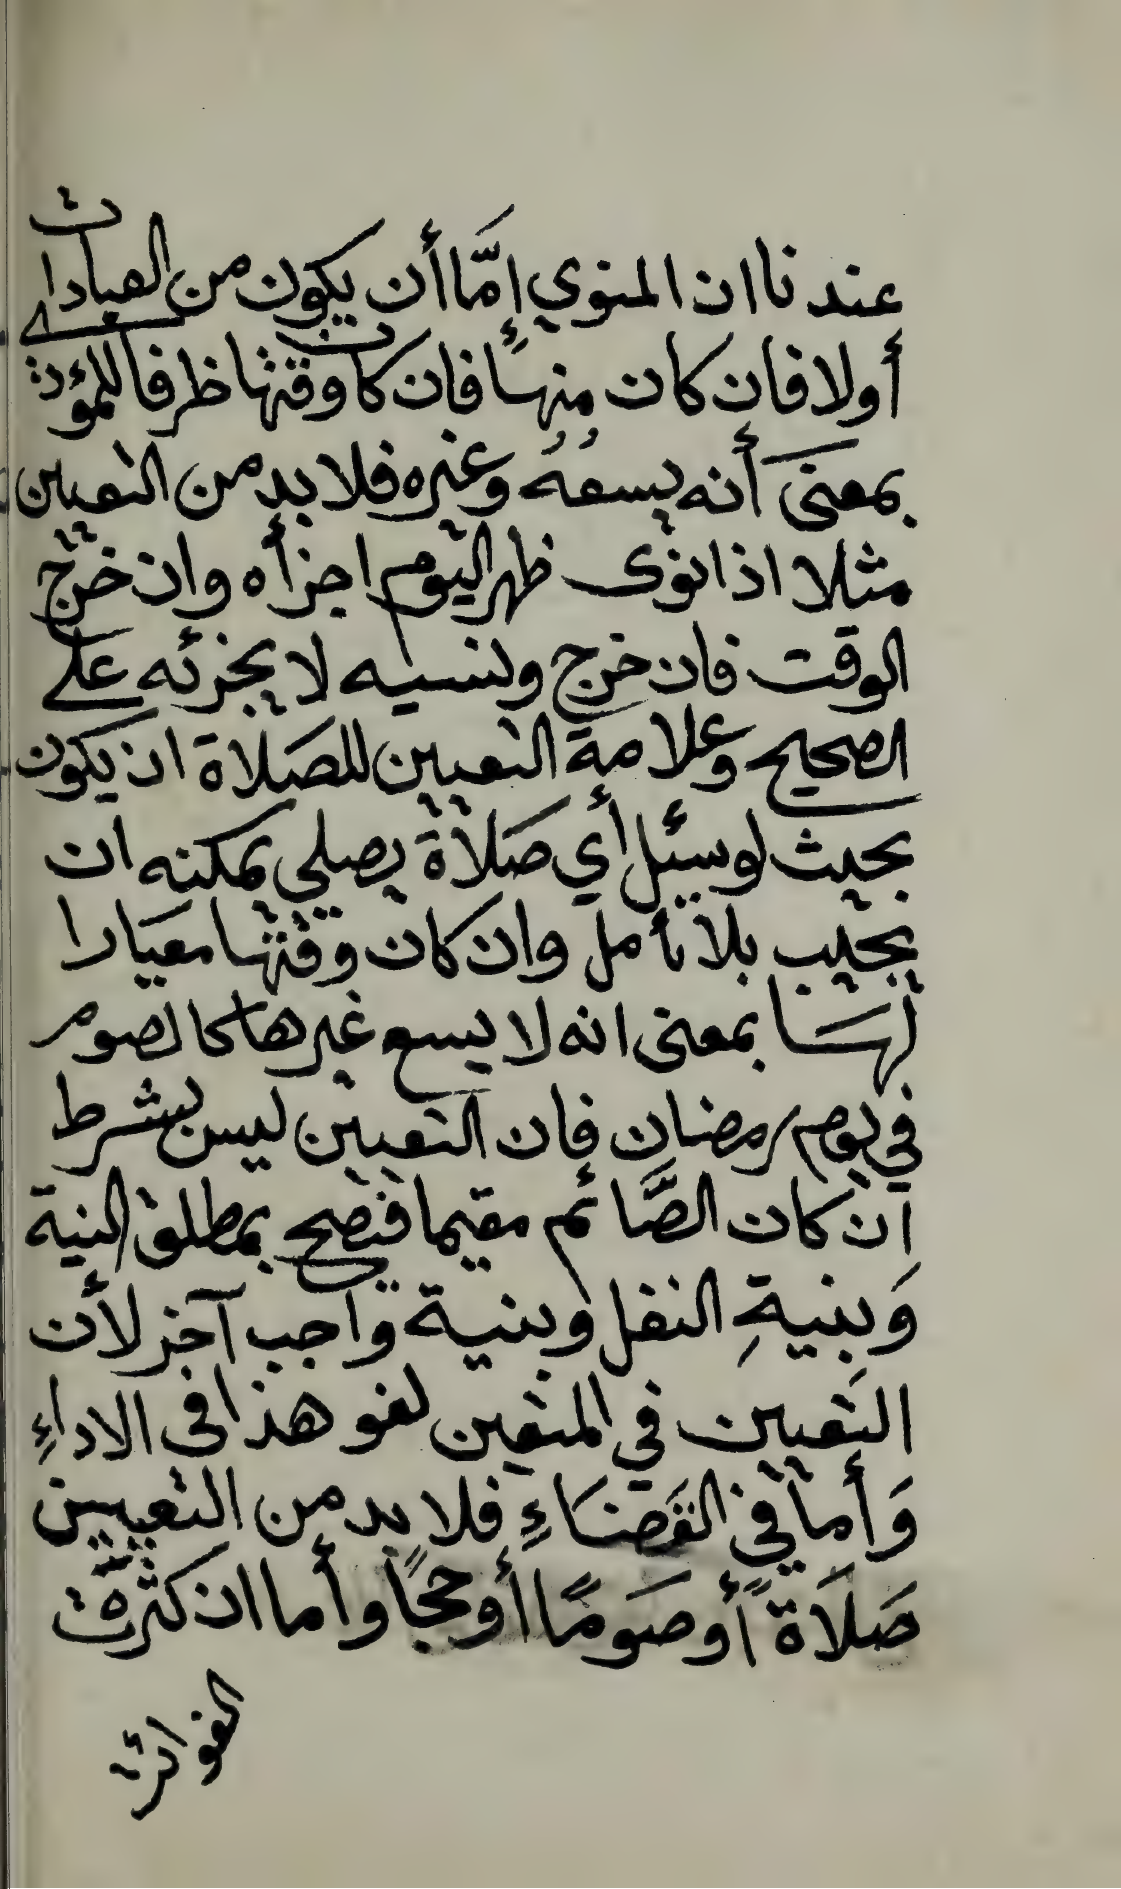 عندنا ان المنوي إمّا أن يكون من العبادات
أولا فان كان منها فان كان وقتها ظرفا للمؤدى
بمعنى أنه يسعه وغيره فلا بد من التعيين
مثلا اذا نوى ظهر اليوم اجزأه وان خرج
الوقت فان خرج ونسيه لا يجزئه على
الصحيح وعلامة التعيين للصلاة ان يكون
بحيث لو سئل أي صلاة يصلي يمكنه ان
يجيب بلا تأمل وان كان وقتها معيارا
لها بمعنى انه لا يسع غيرها كالصوم
في يوم رمضان فان التعيين ليس بشرط
ان كان الصّائم مقيما فتصح بمطلق النية
وَبِنيةِ النفل وبنية واجب آخر لأن
التعيين في المتعين لغو هذا في الاداءِ
وَأما في القضَاءِ فلا بد من التعيين
صَلَاةً أو صَومًا أو حجًا وأما ان كثرت
الفوائت